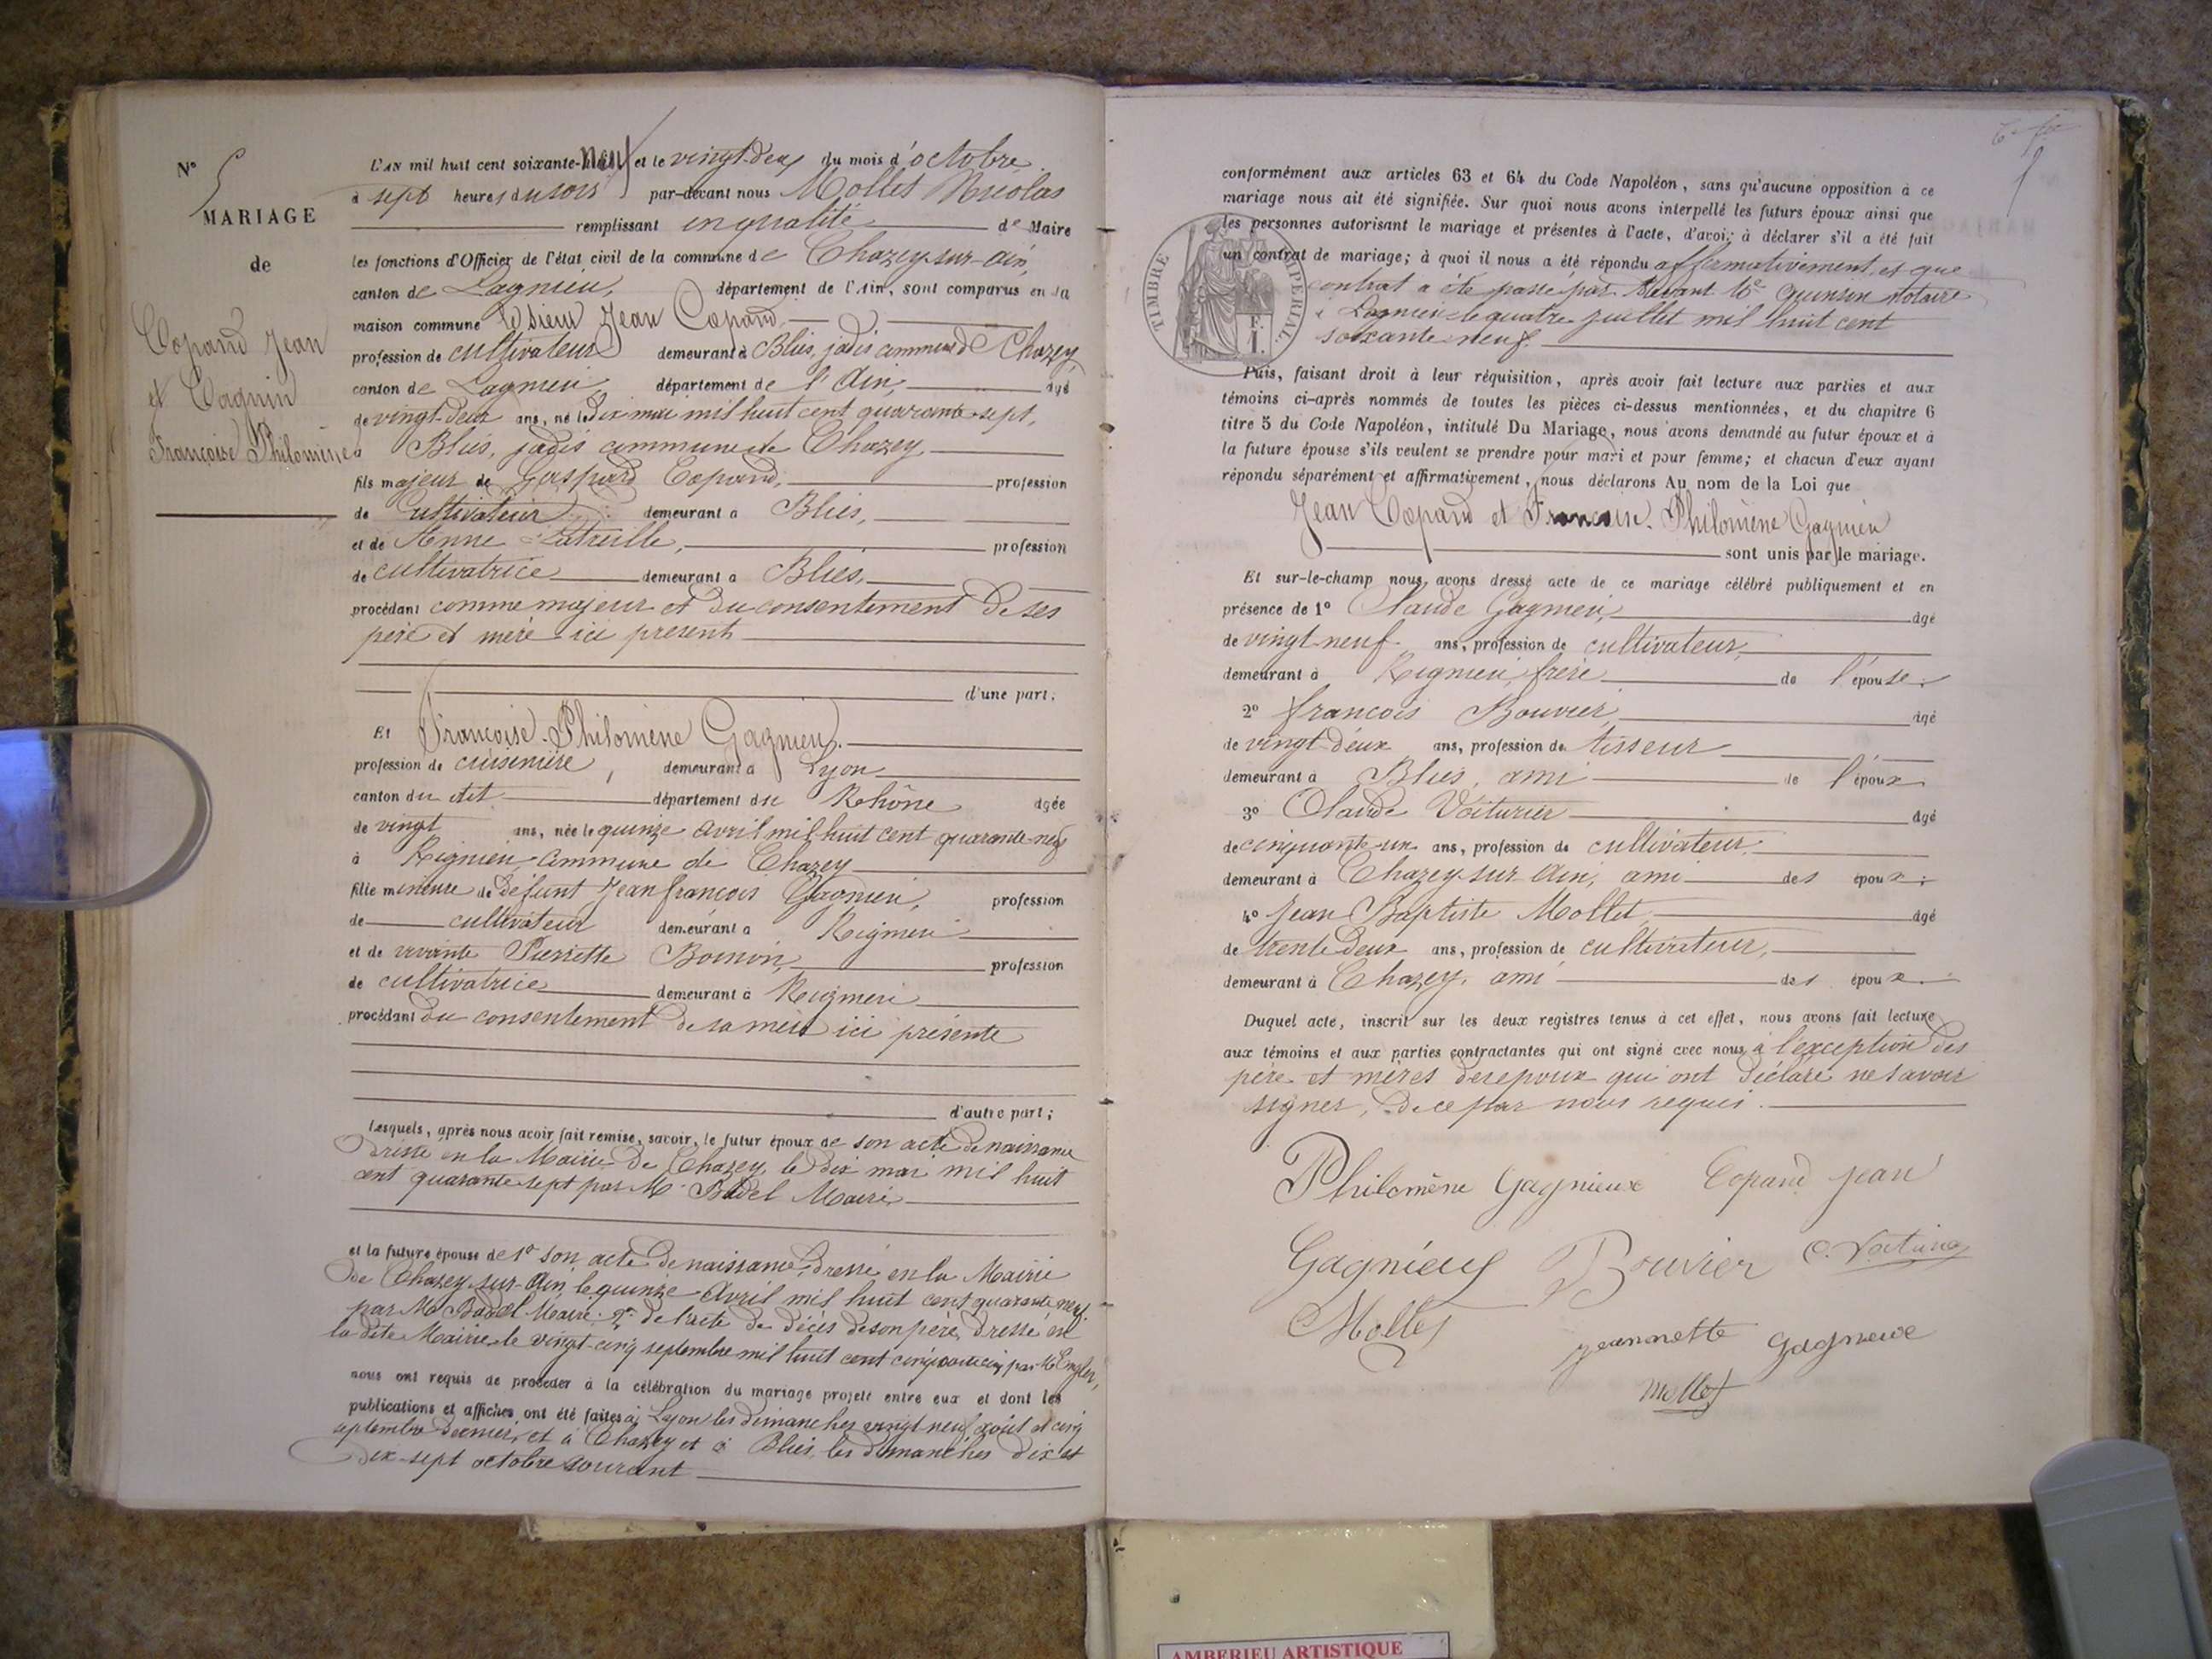 N° 5
MARIAGE
de
Copard Jean
et Gagnin
Françoise Philomène
L'AN mil huit cent soixante-neuf et le vingt-deux du mois d'octobre
à sept heures du soir par-devant nous Mollet Nicolas
remplissant en qualité de Maire
les fonctions d'Officier de l'état civil de la commune de Chazey-sur-Ain,
canton de Lagnieu, département de l'Ain, sont comparus en la
maison commune le sieur Jean Copard,
profession de cultivateur demeurant à Blies, jadis commune de Chazey
canton de Lagnieu, département de l'Ain, âgé
de vingt-deux ans, né le dix mai mil huit cent quarante-sept,
à Blies, jadis commune de Chazey,
fils majeur de Gaspard Copard, profession
de Cultivateur demeurant à Blies,
et de Anne Latreille, profession
de cultivatrice demeurant à Blies,
procédant comme majeur et du consentement de ses
père et mère ici présents
d'une part;
Et Françoise-Philomène Gagnieu.
profession de cuisinière, demeurant à Lyon
canton du dit département du Rhône âgée
de vingt ans, née le quinze avril mil huit cent quarante-neuf
à Rignieu commune de Chazey
fille mineure de défunt Jean françois Gagnieu, profession
de cultivateur demeurant à Rignieu
et de vivante Pierrette profession
de cultivatrice demeurant à Rignieu
procédant du consentement de sa mère ici présente
d'autre part;
Lesquels, après nous avoir fait remise, savoir, le futur époux de son acte de naissance
dressé en la Mairie de Chazey, le dix mai mil huit
cent quarante sept par Mr Badel Maire
et la future épouse de 1° son acte de naissance, dressé en la Mairie
de Chazey-sur-Ain, le quinze Avril mil huit cent quarante neuf
par Mr Badel Maire. 2° de l'acte de décès de son père, dressé en
la dite Mairie le vingt-cinq septembre mil huit cent par Mr
nous ont requis de procéder à la célébration du mariage projeté entre eux et dont les
publications et affiches ont été faites à Lyon les dimanches vingt neuf août et cinq
septembre dernier, et à Chazey et à Blies, les dimanches dix et
dix-sept octobre courant
conformément aux articles 63 et 64 du Code Napoléon, sans qu'aucune opposition à ce
mariage nous ait été signifiée. Sur quoi nous avons interpellé les futurs époux ainsi que
les personnes autorisant le mariage et présentes à l'acte, d'avoir à déclarer s'il a été fait
un contrat de mariage; à quoi il nous a été répondu affirmativement, et que
contrat a été passé par devant Me Quinson notaire
à Lagnieu le quatre juillet mil huit cent
soixante neuf.
TIMBRE IMPÉRIAL
F.
1.
Puis, faisant droit à leur réquisition, après avoir fait lecture aux parties et aux
témoins ci-après nommés de toutes les pièces ci-dessus mentionnées, et du chapitre 6
titre 5 du Code Napoléon, intitulé Du Mariage, nous avons demandé au futur époux et à
la future épouse s'ils veulent se prendre pour mari et pour femme; et chacun d'eux ayant
répondu séparément et affirmativement, nous déclarons Au nom de la Loi que
Jean Copard et Francoise. Philomène Gagnieu
sont unis par le mariage.
Et sur-le-champ nous avons dressé acte de ce mariage célébré publiquement et en
présence de 1° Claude Gagnieu, âgé
de vingt-neuf ans, profession de cultivateur,
demeurant à Rignieu, frère de l'épouse;
2° françois Bouvier, âgé
de vingt-deux ans, profession de tisseur
demeurant à Blies, ami de l'époux
3° Claude Voiturier âgé
de cinquante-un ans, profession de cultivateur
demeurant à Chazey-sur-Ain, ami des époux;
4° Jean Baptiste Mollet, âgé
de trente deux ans, profession de cultivateur,
demeurant à Chazey, ami des époux.
Duquel acte, inscrit sur les deux registres tenus à cet effet, nous avons fait lecture
aux témoins et aux parties contractantes qui ont signé avec nous à l'exception des
père et mères des époux qui ont déclaré ne savoir
signer, de ce par nous requis.
Philomène Gagnieux Copard jean
Gagnieux Bouvier
Mollet
jeannette Gagneux
mollet
AMBERIEU ARTISTIQUE